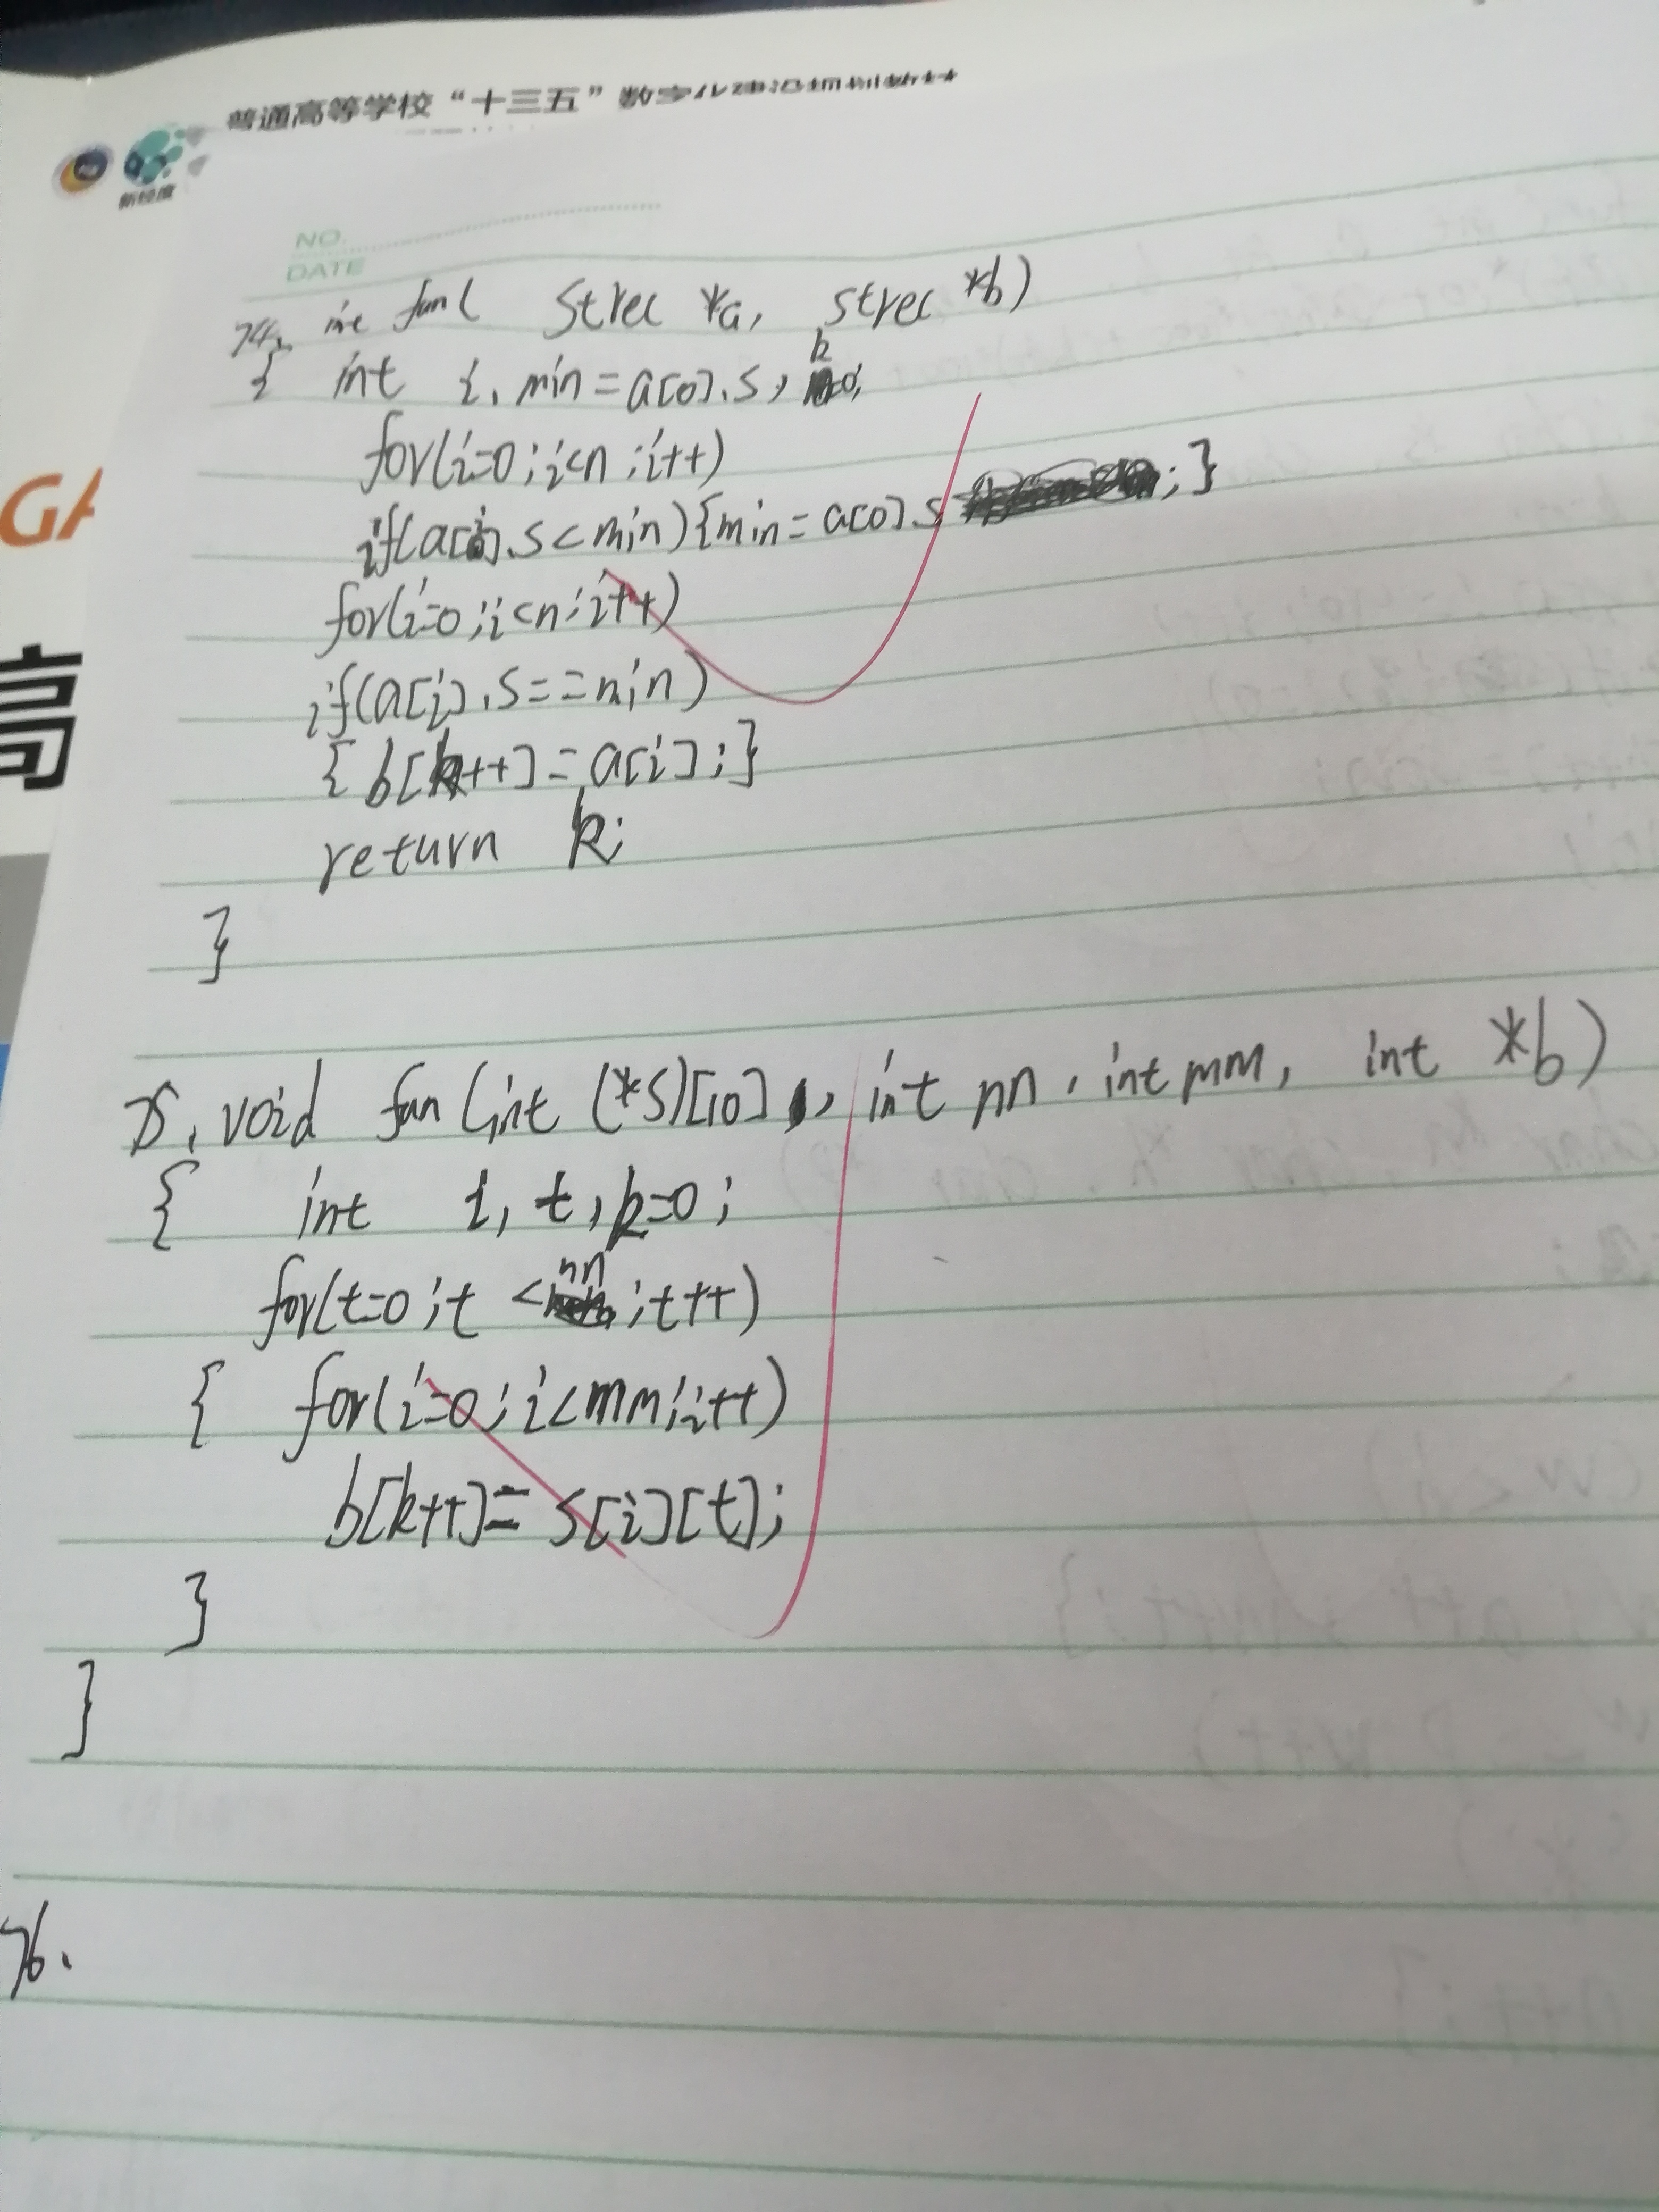 普通高等学校“十三五”数字化建设规划教材
新轻度
NO.
DATE
GA
高
74. int fun( Strec *a, strec *b)
{ int i, min=a[0].s, k=0;
for(i=0;i<n;i++)
if(a[i].s<min){min=a[0].s;}
for(i=0;i<n;i++)
if(a[i].s==min)
{b[k++]=a[i];}
return k;
}
75. void fun(int (*s)[10], int nn, int mm, int *b)
{ int i, t, k=0;
for(t=0;t<nn;t++)
{ for(i=0;i<mm;i++)
b[k++]=s[i][t];
}
}
76.